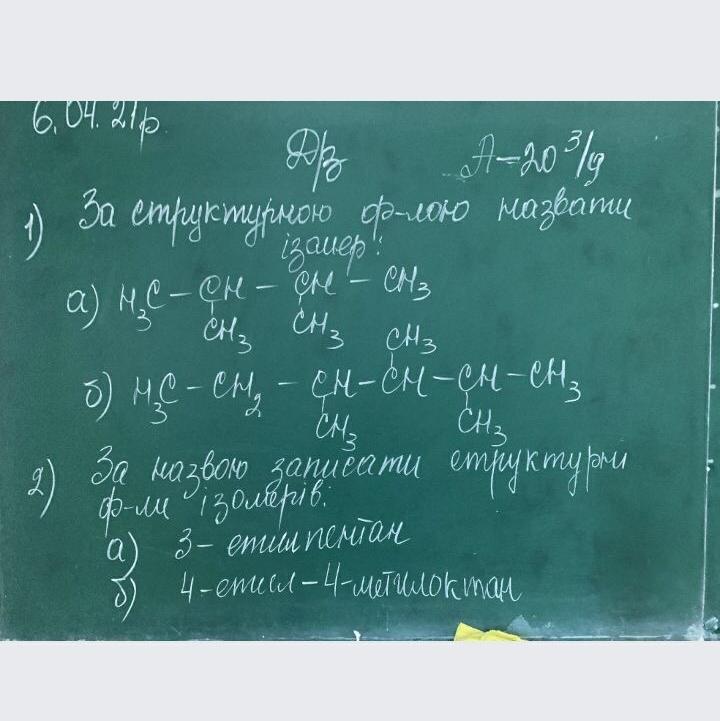 6.04.21р.
Д/з А-20 3/9
1) За структурною ф-лою назвати
ізомер:
а) H₃C - CH - CH - CH₃
CH₃ CH₃
CH₃
б) H₃C - CH₂ - CH - CH - CH - CH₃
CH₃ CH₃
2) За назвою записати структурні
ф-ли ізомерів:
а) 3-етилпентан
б) 4-етил-4-метилоктан